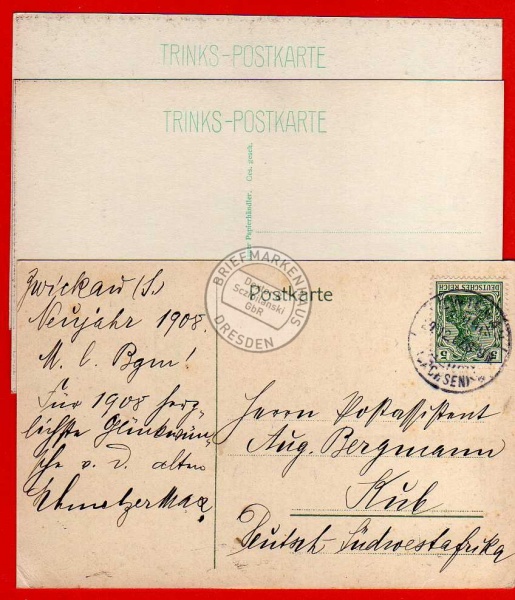 TRINKS-POSTKARTE
TRINKS-POSTKARTE
Papierhändler. Ges. gesch.
BRIEFMARKENHAUS
DRESDEN
GbR
Postkarte
DEUTSCHES REICH
5 5
Zwickau /S.
Neujahr 1908.
M. l. Bgm!
Für 1908 herz-
lichste Glückwün-
sche v. d. alten
Herrn Postassistent
Aug. Bergmann
Kub
Deutsch-Südwestafrika